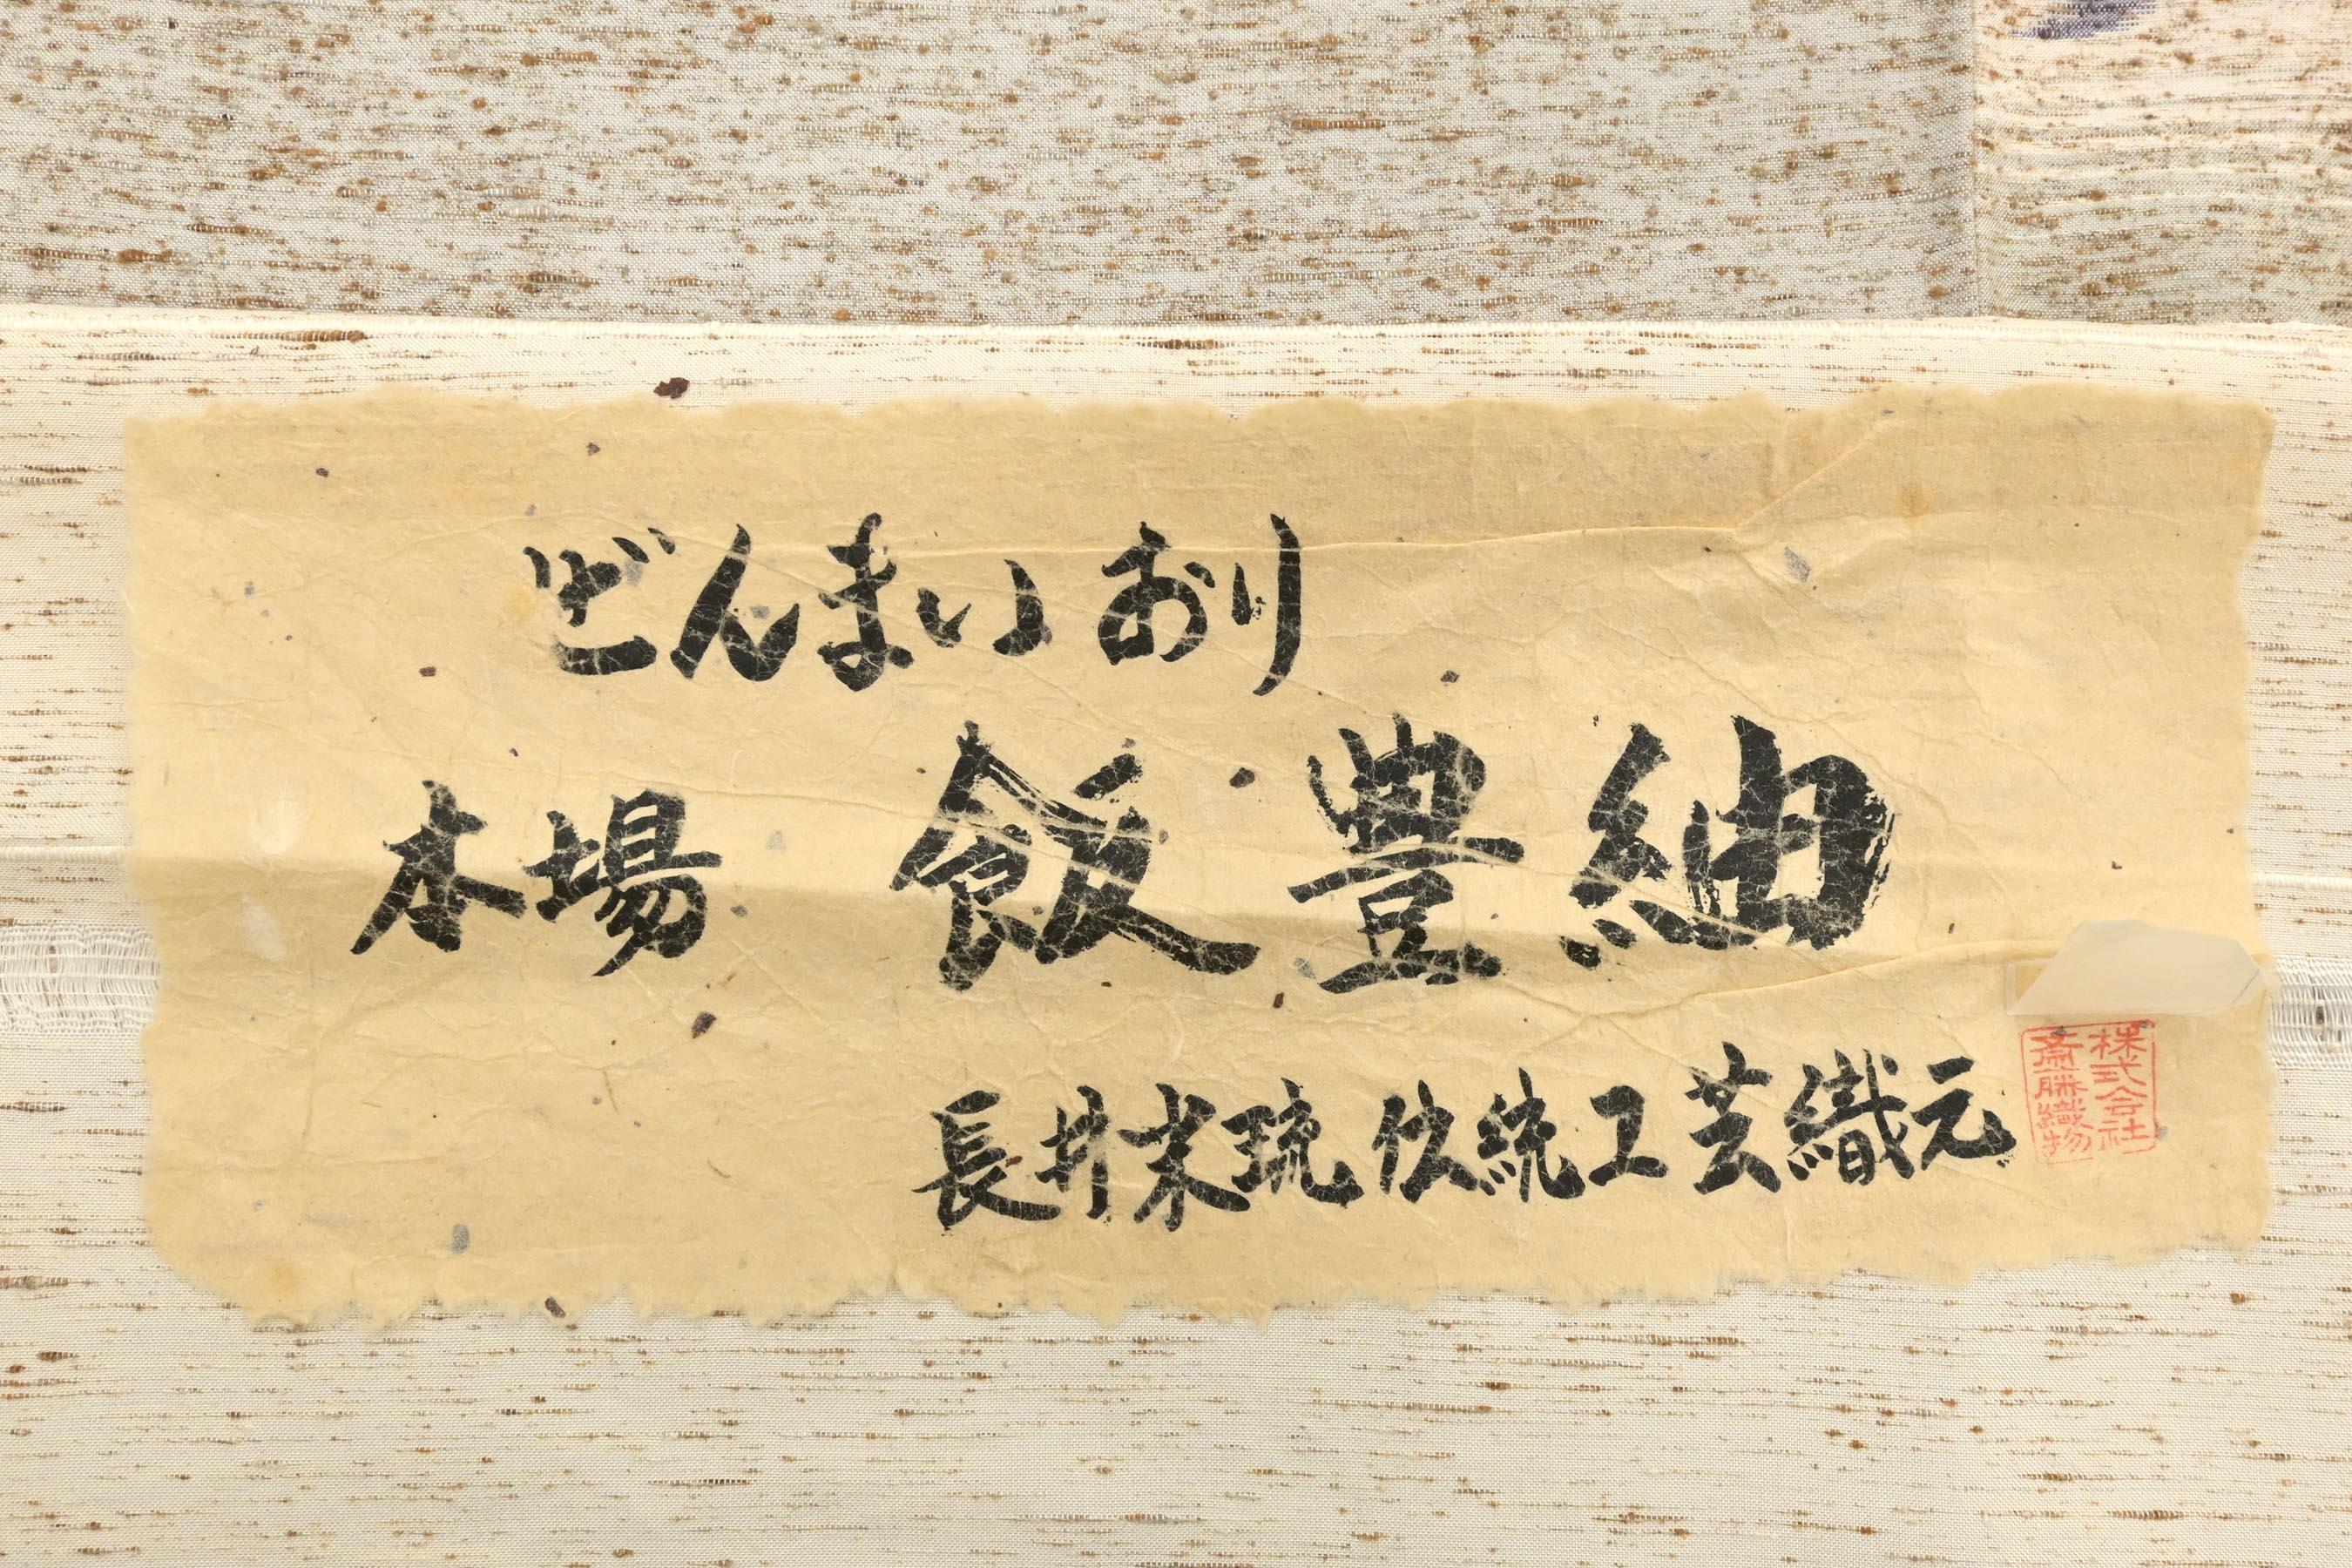 ぜんまいおり
本場 飯豊紬
長井末琉伝統工芸織元
株式会社
斎藤織物